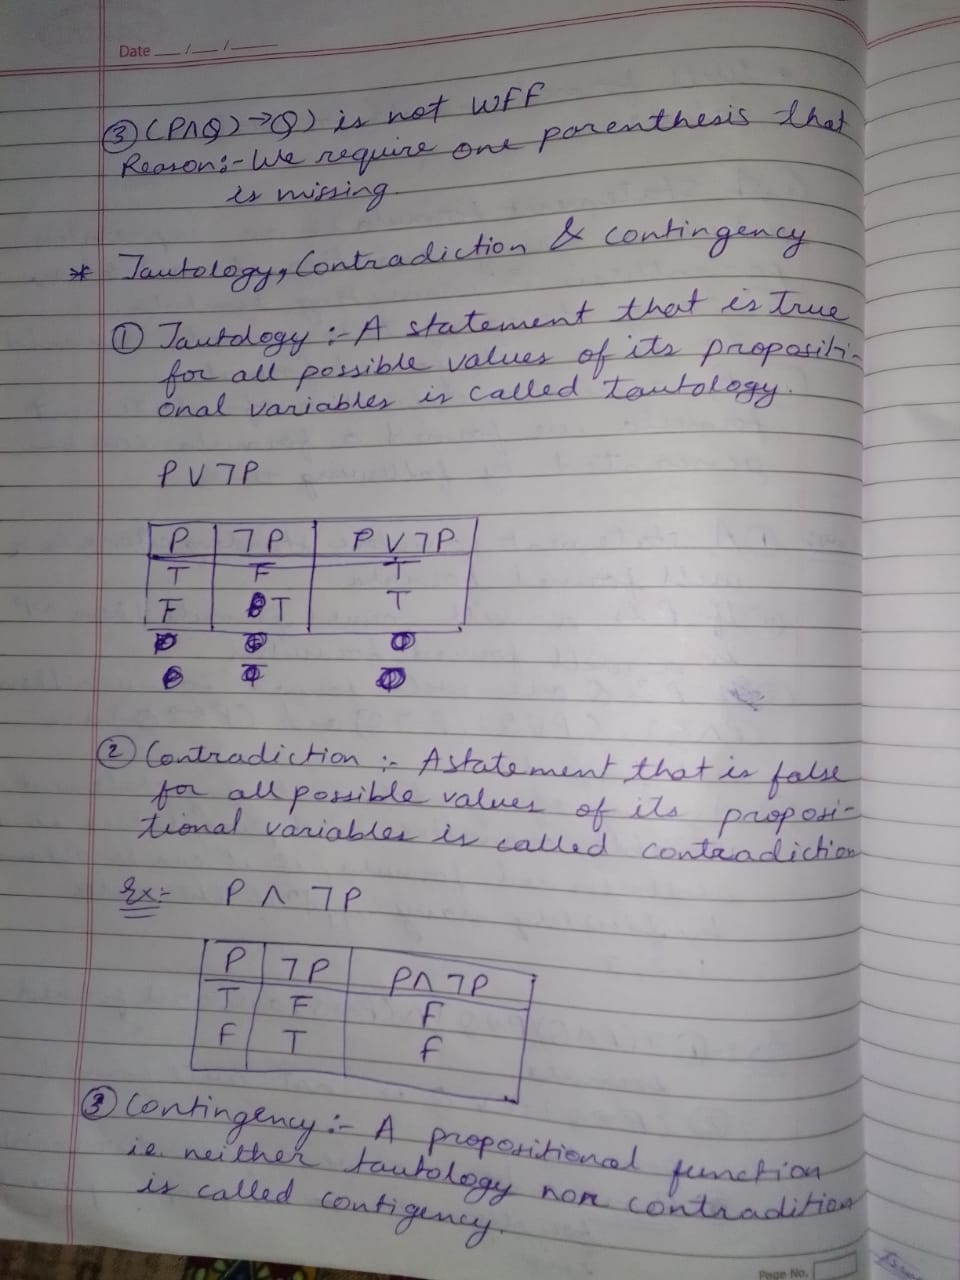 Date __/__/__
③ (P∧Q) → Q) is not WFF
Reason:- We require one parenthesis that
is missing.
* Tautology, Contradiction & contingency
① Tautology :- A statement that is True
for all possible values of its propositi-
onal variables is called tautology.
P ∨ ⅂P
P ⅂P P ∨ ⅂P
T F T
F T T
② Contradiction :- A statement that is false
for all possible values of its proposi-
tional variables is called contradiction
Ex:- P ∧ ⅂P
P ⅂P P ∧ ⅂P
T F F
F T F
③ Contingency :- A propositional function
i.e. neither tautology nor contradition
is called contigency.
Page No.